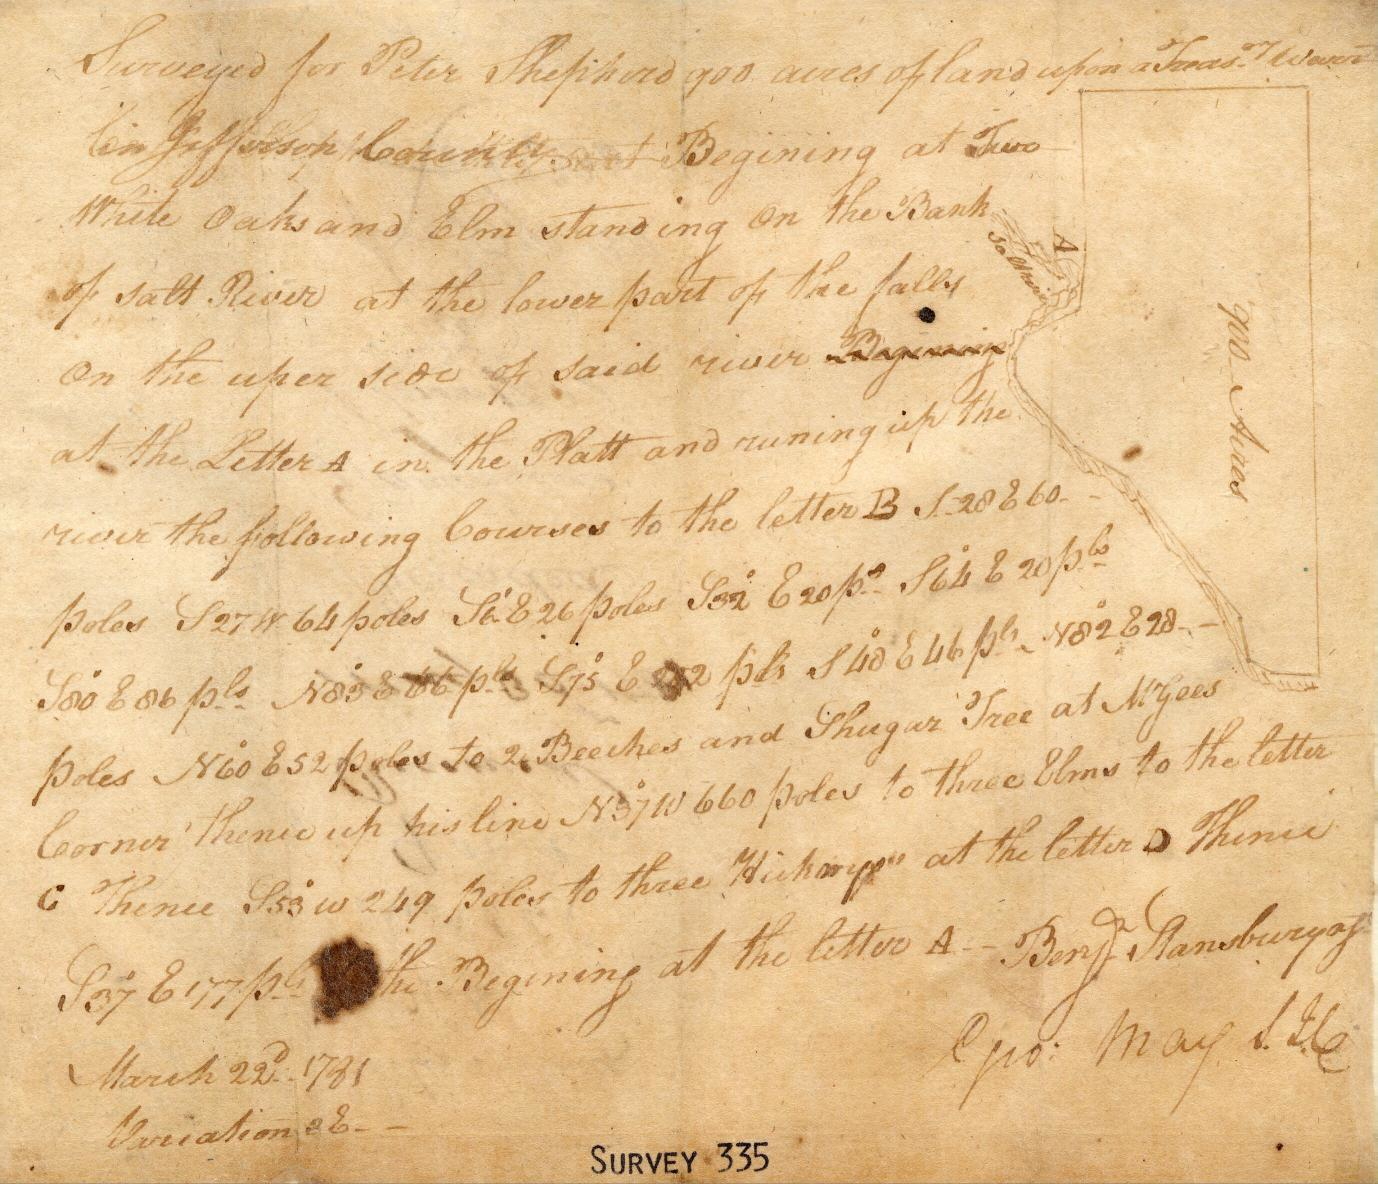 Surveyed for Peter Shepherd 900 acres of land upon a Treas.y Warrt
in Jefferson County Begining at Two
White Oaks and Elm standing on the Bank
of salt River at the lower part of the falls
on the uper side of said river Begining
at the Letter A in the Platt and runing up the
river the following Courses to the letter B S 28 E 60
poles S 27 W 64 poles S 6° E 26 poles S 32° E 20 pls S 64° E 20 pls
S 80° E 86 pls N 83° E 66 pls S 75° E pls S 48° E 46 pls N 82° E 28
poles N 60° E 52 poles to 2 Beeches and Shugar Tree at McGees
Corner thence up his line N 37° W 660 poles to three Elms to the letter
C Thence S 53° W 249 poles to three at the letter D Thence
S 37° E 177 pls the Begining at the letter A Benj.n Stansbury
March 22d 1781
Geo: May S.J.C
Variation 2 E
A
Salt River
900 Acres
SURVEY 335